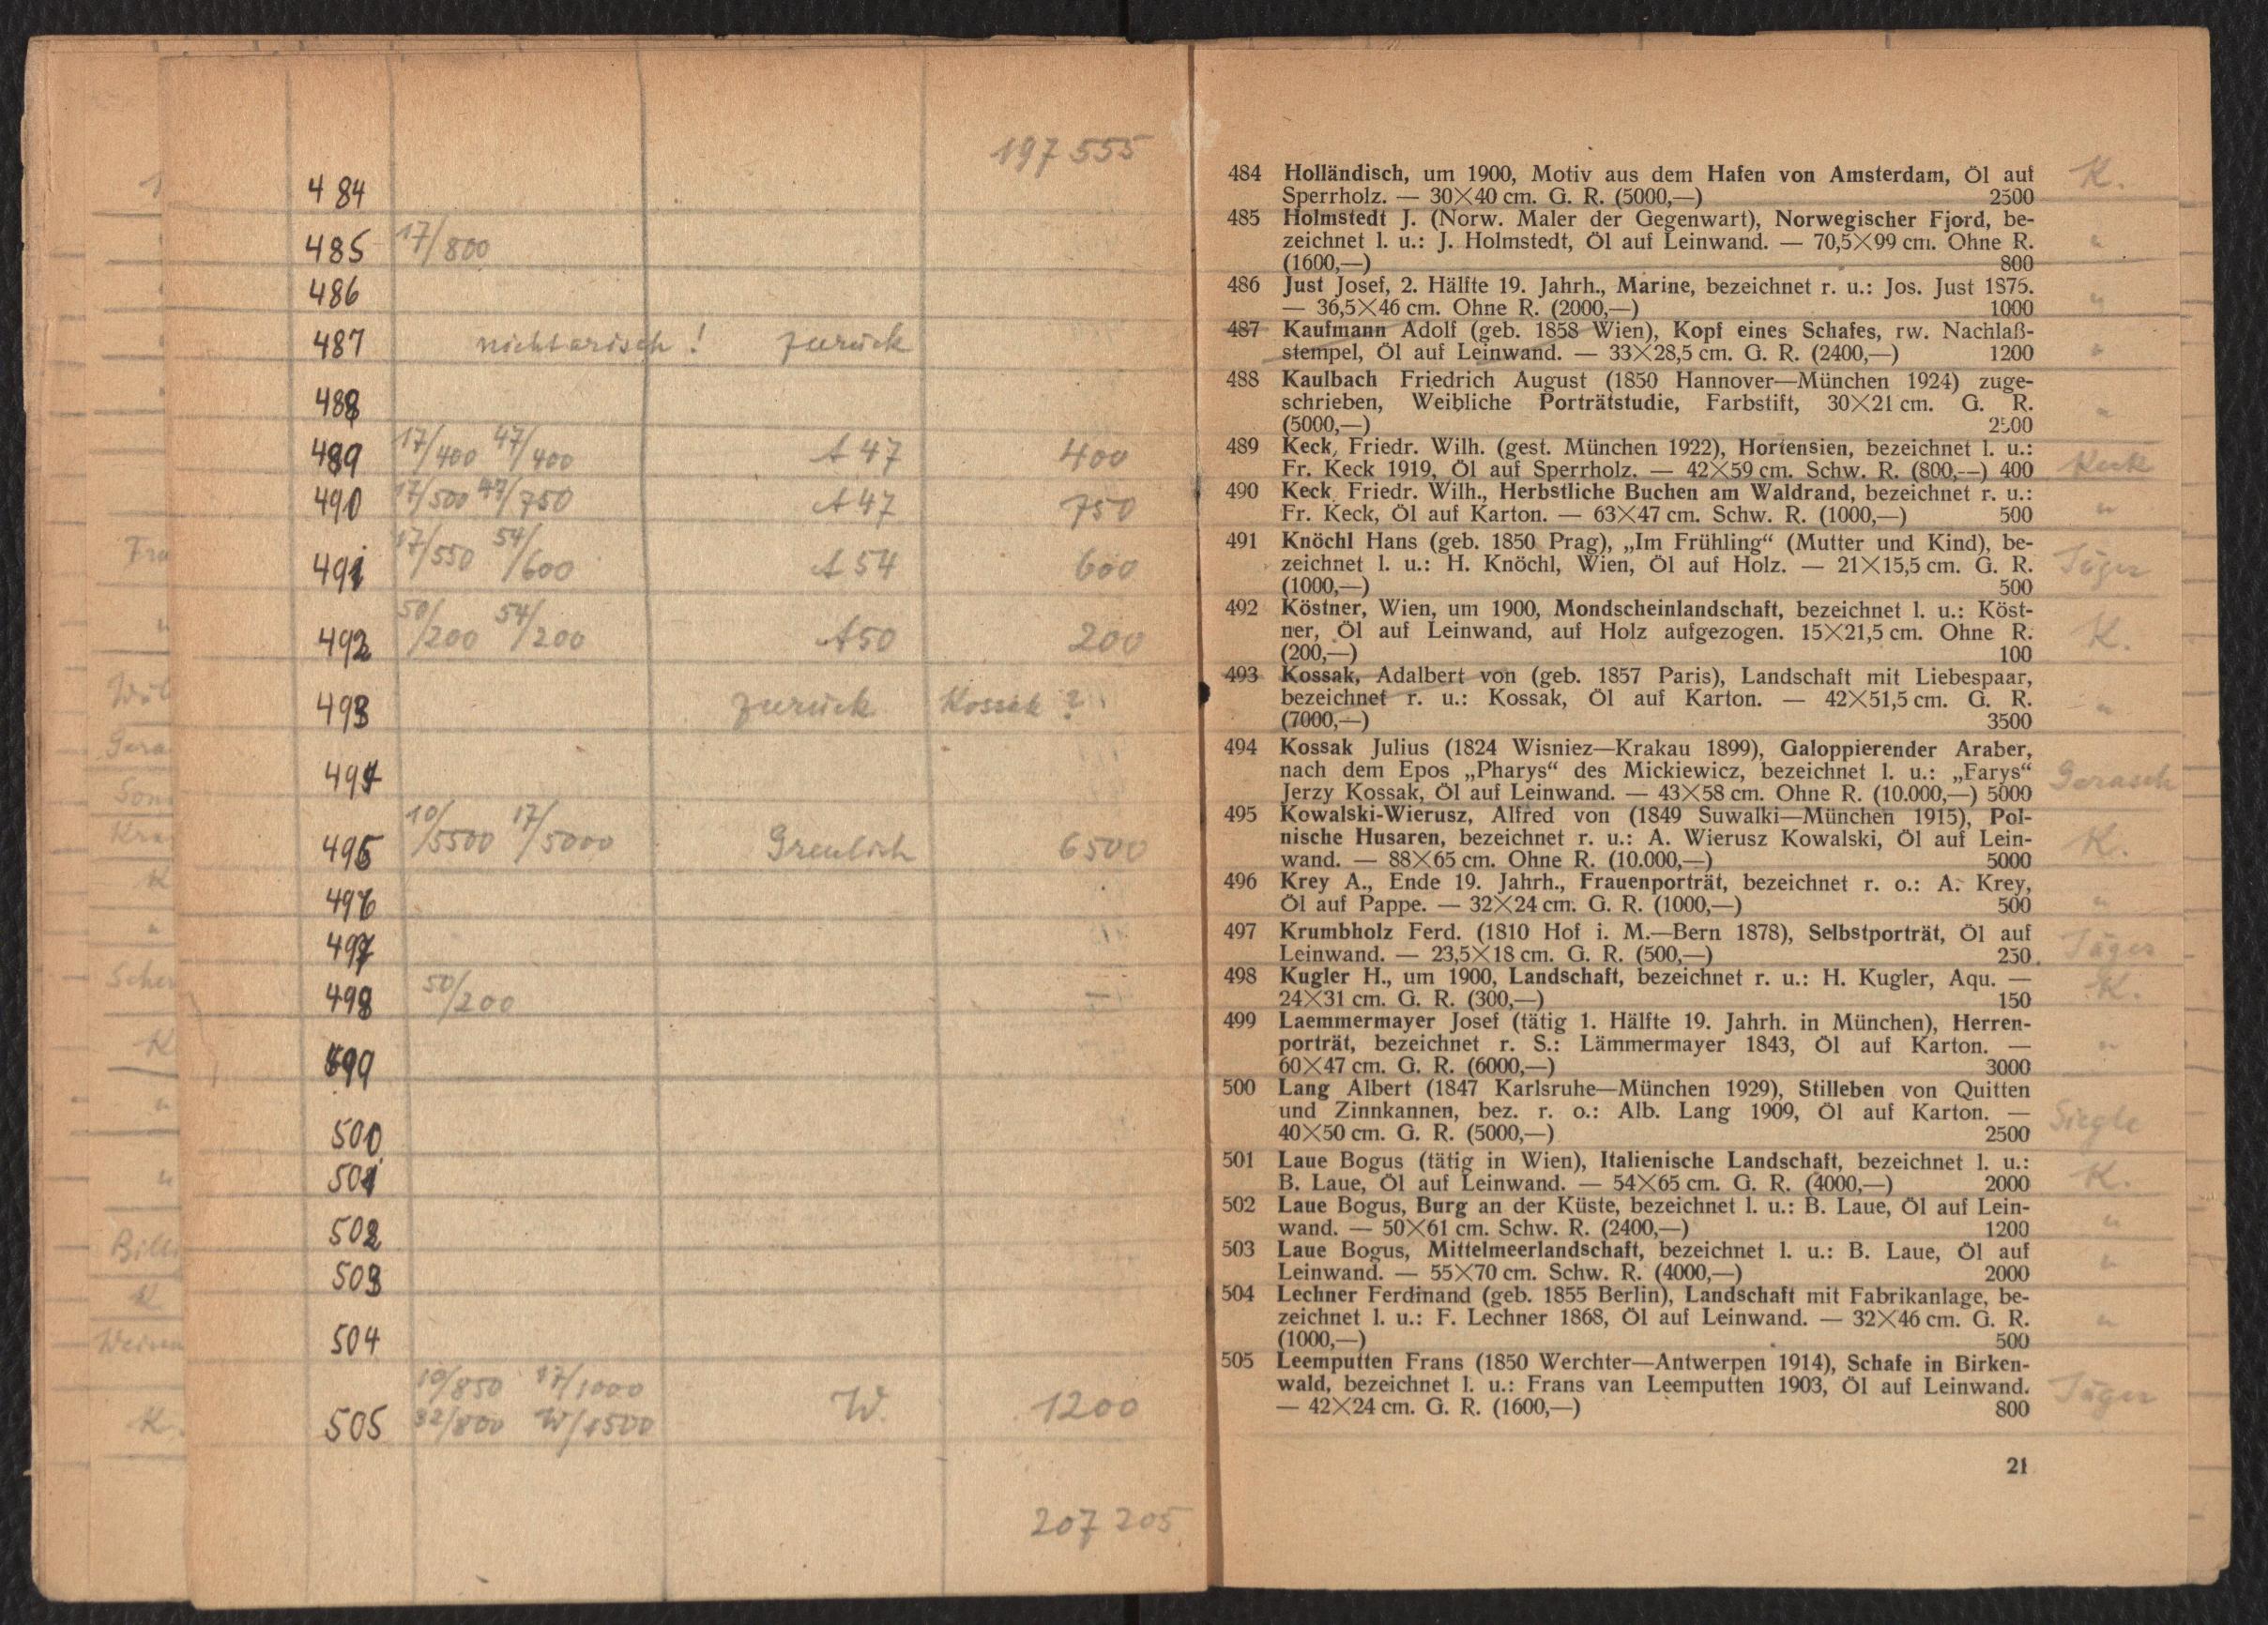 197 555
484
485 17/800
486
487 nichtarisch! zurück
488
489 17/400 47/400 A 47 400
490 17/500 47/750 A 47 750
491 17/550 54/600 A 54 600
492 50/200 54/200 A50 200
493 zurück Kossak ?
494
495 10/5500 17/5000 Greulich 6500
496
497
498 50/200 —
499
500
501
502
503
504
10/850 17/1000
505 32/800 W/1500 W. 1200
207 205
Fra
"
Gera
Kra
K
"
Scher
K
"
"
Bill
K
K.
484 Holländisch, um 1900, Motiv aus dem Hafen von Amsterdam, Öl auf K.
Sperrholz. — 30×40 cm. G. R. (5000,—) 2500
485 Holmstedt J. (Norw. Maler der Gegenwart), Norwegischer Fjord, be-
zeichnet l. u.: J. Holmstedt, Öl auf Leinwand. — 70,5×99 cm. Ohne R. "
(1600,—) 800
486 Just Josef, 2. Hälfte 19. Jahrh., Marine, bezeichnet r. u.: Jos. Just 1875. "
— 36,5×46 cm. Ohne R. (2000,—) 1000
487 Kaufmann Adolf (geb. 1858 Wien), Kopf eines Schafes, rw. Nachlaß-
stempel, Öl auf Leinwand. — 33×28,5 cm. G. R. (2400,—) 1200 "
488 Kaulbach Friedrich August (1850 Hannover—München 1924) zuge-
schrieben, Weibliche Porträtstudie, Farbstift, 30×21 cm. G. R. "
(5000,—) 2500
489 Keck, Friedr. Wilh. (gest. München 1922), Hortensien, bezeichnet l. u.:
Fr. Keck 1919, Öl auf Sperrholz. — 42×59 cm. Schw. R. (800,--) 400 Keck
490 Keck, Friedr. Wilh., Herbstliche Buchen am Waldrand, bezeichnet r. u.:
Fr. Keck, Öl auf Karton. — 63×47 cm. Schw. R. (1000,—) 500 "
491 Knöchl Hans (geb. 1850 Prag), „Im Frühling“ (Mutter und Kind), be-
zeichnet l. u.: H. Knöchl, Wien, Öl auf Holz. — 21×15,5 cm. G. R. Jäger
(1000,—) 500
492 Köstner, Wien, um 1900, Mondscheinlandschaft, bezeichnet l. u.: Köst-
ner, Öl auf Leinwand, auf Holz aufgezogen. 15×21,5 cm. Ohne R. K.
(200,—) 100
493 Kossak, Adalbert von (geb. 1857 Paris), Landschaft mit Liebespaar,
bezeichnet r. u.: Kossak, Öl auf Karton. — 42×51,5 cm. G. R. "
(7000,—) 3500
494 Kossak Julius (1824 Wisniez—Krakau 1899), Galoppierender Araber,
nach dem Epos „Pharys“ des Mickiewicz, bezeichnet l. u.: „Farys“ Gerasch
Jerzy Kossak, Öl auf Leinwand. — 43×58 cm. Ohne R. (10.000,—) 5000
495 Kowalski-Wierusz, Alfred von (1849 Suwalki—München 1915), Pol-
nische Husaren, bezeichnet r. u.: A. Wierusz Kowalski, Öl auf Lein- K.
wand. — 88×65 cm. Ohne R. (10.000,—) 5000
496 Krey A., Ende 19. Jahrh., Frauenporträt, bezeichnet r. o.: A. Krey,
Öl auf Pappe. — 32×24 cm. G. R. (1000,—) 500 "
497 Krumbholz Ferd. (1810 Hof i. M.—Bern 1878), Selbstporträt, Öl auf
Leinwand. — 23,5×18 cm. G. R. (500,—) 250 Jäger
498 Kugler H., um 1900, Landschaft, bezeichnet r. u.: H. Kugler, Aqu. —
24×31 cm. G. R. (300,—) 150 K.
499 Laemmermayer Josef (tätig 1. Hälfte 19. Jahrh. in München), Herren-
porträt, bezeichnet r. S.: Lämmermayer 1843, Öl auf Karton. — "
60×47 cm. G. R. (6000,—) 3000
500 Lang Albert (1847 Karlsruhe—München 1929), Stilleben von Quitten
und Zinnkannen, bez. r. o.: Alb. Lang 1909, Öl auf Karton. — Siegle
40×50 cm. G. R. (5000,—) 2500
501 Laue Bogus (tätig in Wien), Italienische Landschaft, bezeichnet l. u.:
B. Laue, Öl auf Leinwand. — 54×65 cm. G. R. (4000,—) 2000 K.
502 Laue Bogus, Burg an der Küste, bezeichnet l. u.: B. Laue, Öl auf Lein-
wand. — 50×61 cm. Schw. R. (2400,—) 1200 "
503 Laue Bogus, Mittelmeerlandschaft, bezeichnet l. u.: B. Laue, Öl auf
Leinwand. — 55×70 cm. Schw. R. (4000,—) 2000 "
504 Lechner Ferdinand (geb. 1855 Berlin), Landschaft mit Fabrikanlage, be-
zeichnet l. u.: F. Lechner 1868, Öl auf Leinwand. — 32×46 cm. G. R. "
(1000,—) 500
505 Leemputten Frans (1850 Werchter—Antwerpen 1914), Schafe in Birken-
wald, bezeichnet l. u.: Frans van Leemputten 1903, Öl auf Leinwand. Jäger
— 42×24 cm. G. R. (1600,—) 800
21